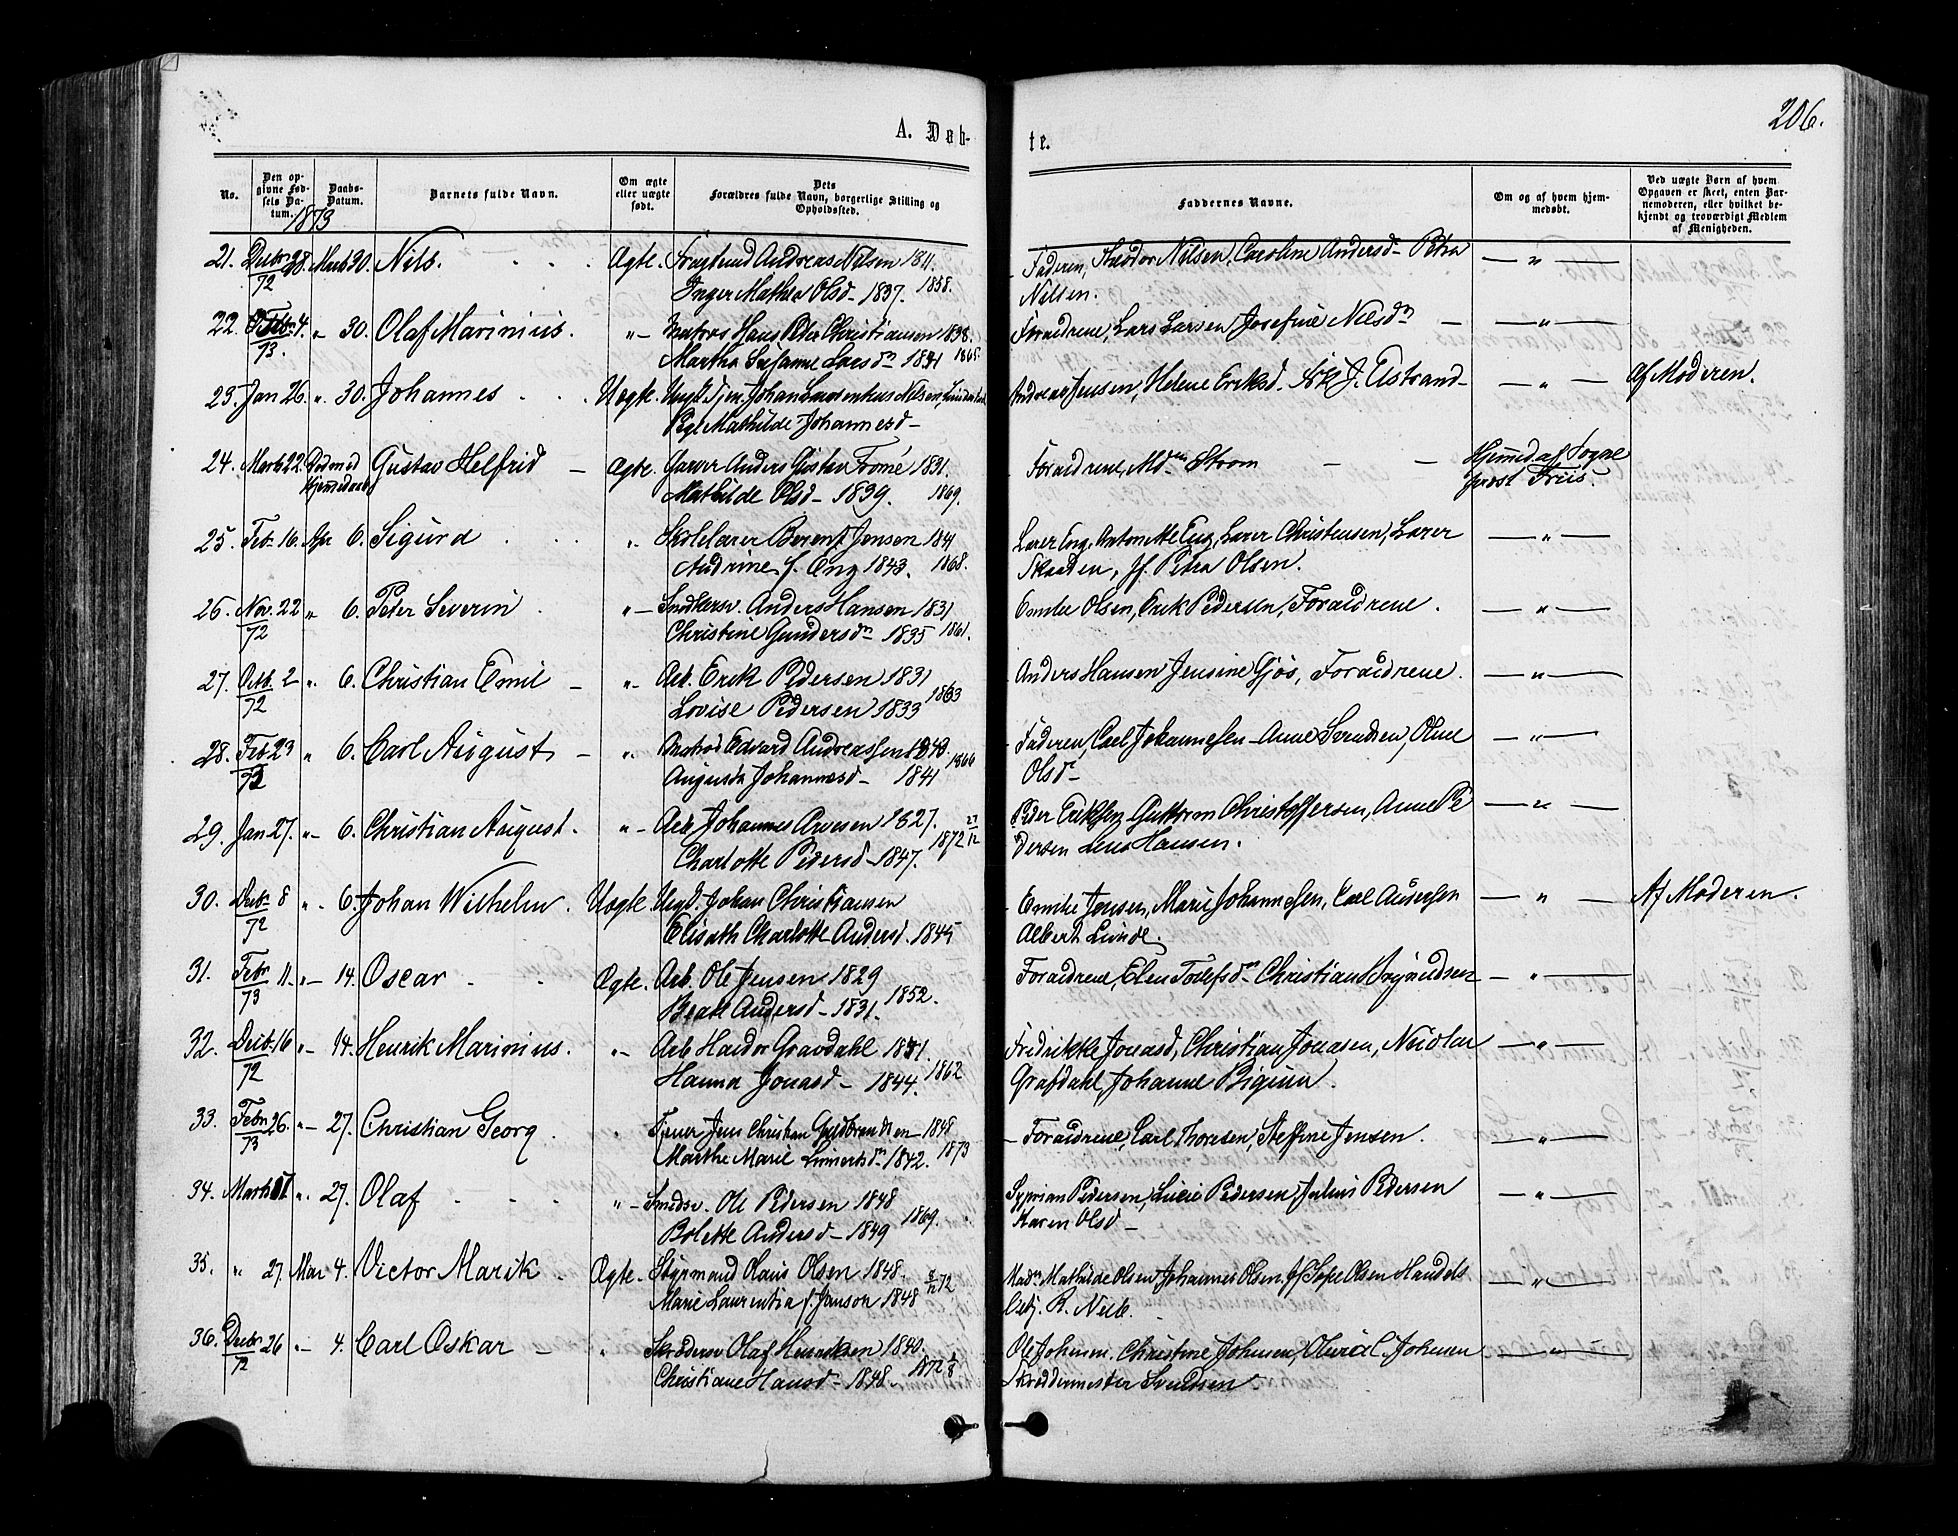 206.
A. Døb-
te.
No.
Den op-
givne Fød-
sels Da-
tum.
1873
Daabs-
Datum.
Barnets fulde Navn.
Om ægte
eller uægte
født.
Dets
Forældres fulde Navn, borgerlige Stilling og
Opholdssted.
Faddernes Navne.
Om og af hvem hjem-
medøbt.
Ved uægte Børn af hvem
Opgaven er skeet, enten Bar-
nemoderen, eller hvilket be-
kjendt og troværdigt Medlem
af Menigheden.
21. Decbr 28. Marts 30. Nils. Ægte. Andreas Nilsen 1811. Faderen, Theodor Nilsen, Caroline Andersd- Petra — " —
72 Inger Mathea Olsd- 1837. 1858. Nilsen.
22. Febr. 4. " 30. Olaf Marinius. "- Matros Hans Peter Christiansen 1838. Forældrene, Lars Larsen Josefine Nilsdn — " —
73. Martha Susanne Larsdn 1841 1865.
23. Jan 26. " 30. Johannes Uægte. Johan Nilsen, Andreas Jensen, Helene Eriksd. J. Elstrand- — " — Af Moderen.
Pge Mathilde Johannesd-
24. Marts 22. Døbt med Gustav Helfrid - Ægte. Garver Anders Gustav Fromé 1831. Forældrene, Mdm Strøm Hjemmed af Sogne
Mathilde Olsd- 1839. 1869. prost Friis.
25. Feb. 16. Apr 6. Sigurd " Skolelærer Berent Jensen 1841 Lærer Eng, Antonette Eng, Lærer Christensen, Lærer — " —
Andrine f. Eng 1843. 1868. Skaaden, Jf. Petra Olsen.
26. Nov. 22 " 6. Peter Severin "- Anders Hansen 1831 Emilie Olsen, Erik Pedersen, Forældrene. — " —
72 Christine Gundersdn 1835 1861.
27. Octb. 2 " 6. Christian Emil - "- Arb. Erik Pedersen 1831 Anders Hansen Jensine Gjøs, Forældrene. — " —
72 Lovise Pedersen 1833 1863
28. Feb 23 " 6. Carl August - " Matros Edvard Andreassen 1843 Faderen, Carl Johannesen - Anne Svendsen, Oline — " —
73 Augusta Johannesd- 1841 1866 Olsd-
29. Jan 27. "- 6. Christian August. "- Arb Johannes Arvesen 1827. 27/12 Peder Eriksen Guttorm Christoffersen, Anne Pe — " —
Charlotte Pedersd- 1847. 1872 dersen Lena Hansen.
30. Decbr 8 " 6. Johan Wilhelm. Uægte. Ungk. Johan Christiansen Emilie Jensen, Marie Johannesen, Carl Andersen — " — Af Moderen.
72 Elisabth Charlotte Andersd. 1845 Albert Lunde.
31. Febr 11. "- 14. Oscar - Ægte. Arb. Ole Jensen 1829 Forældrene, Elen Tolefsdn Christian — " —
73 Beate Andersd- 1831. 1852.
32. Decbr. 16 "- 14. Henrik Marinius. "- Arb Haldor Gravdahl 1841. Fredrikke Jonasd, Christian Jonasen, Nicolai — " —
72 Hanna Jonasd- 1844. 1862 Grafdahl, Johanne
33. Febr. 26. "- 27. Christian Georg. " Jens Christian Guldbrandsen - 1848 - Forældrene, Carl Thoresen, Steffine Jensen. — " —
73 Marthe Marie 1842. 1873
34. Marts " 27. Olaf "- Smedsv. Ole Pedersen 1848 Syprian Pedersen, Lucie Pedersen, Julius Pedersen — " —
Bolette Andersd- 1849 1869. Karen Olsd-
35. " 27. Mai 4. Victor Marik - Ægte. Styrmand Olaus Olsen 1848. Madm Mathilde Olsen Johannes Olsen, Jf Sofie Olsen Handels — " —
Marie Laurentia f. Janson 1848 72 betj. R.
36. Decbr 26 "- 4. Carl Oskar - " Skrædersv Olaf Henriksen 1840. Ole Johnsen. Christine Johnsen, C. Johnsen — " —
72 Christiane Hansd- 1848. 1872 Skreddermester Svendsen